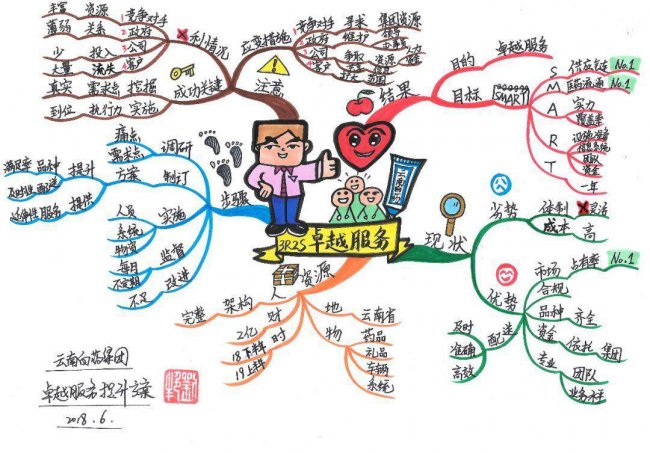 3R2S卓越服务
结果
目的
卓越服务
目标
SMART
S
供应链
No.1
医药流通
No.1
M
实力
覆盖率
A
设施准备
信息系统
R
团队
资金
T
一年
现状
劣势
体制
灵活
成本
高
优势
市场
占有率
No.1
合规
品种
齐全
资金
依托
集团
专业
团队
业务水平
配送
及时
准确
高效
资源
人
架构
完整
财
2亿
时
18下半年
19上半年
地
云南省
物
药品
礼品
车辆
系统
步骤
调研
痛点
需求点
制订
方案
提升
满足率
品种
及时性
配送
提供
延伸性
服务
实施
人员
系统
物资
监督
每月
不定期
改进
不足
注意
不利情况
竞争对手
资源
丰富
政府
关系
薄弱
公司
投入
少
客户
流失
大量
应变措施
竞争对手
寻求
集团资源
政府
维护
公司
争取
资源
客户
扩大
范围
成功关键
挖掘
需求点
真实
实施
执行力
到位
云南白药集团
卓越服务提升方案
2018.6.